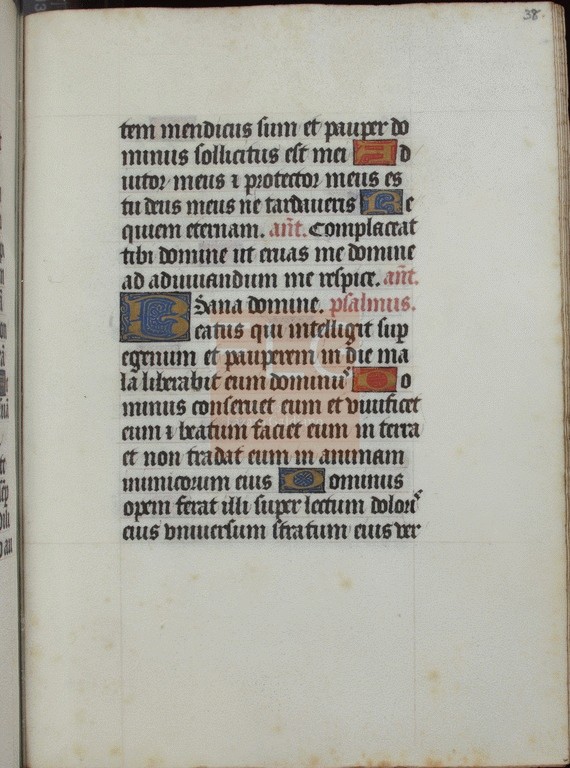 38.
tem mendicus sum et pauper do
minus sollicitus est mei Ad
iutor meus ⁊ protector meus es
tu deus meus ne tardaueris Re
quiem eternam. ant̄. Complaceat
tibi domine ut eruas me domine
ad adiuuandum me respice. ant̄.
Sana domine. psalmus.
Beatus qui intelligit sup
egenum et pauperem in die ma
la liberabit eum dominū Do
minus conseruet eum et viuificet
eum ⁊ beatum faciet eum in terra
et non tradat eum in animam
inimicorum eius Dominus
opem ferat illi super lectum dolori᷒
eius vniuersum stratum eius ver